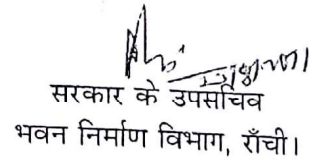 सरकार के उपसचिव
भवन निर्माण विभाग, राँची।